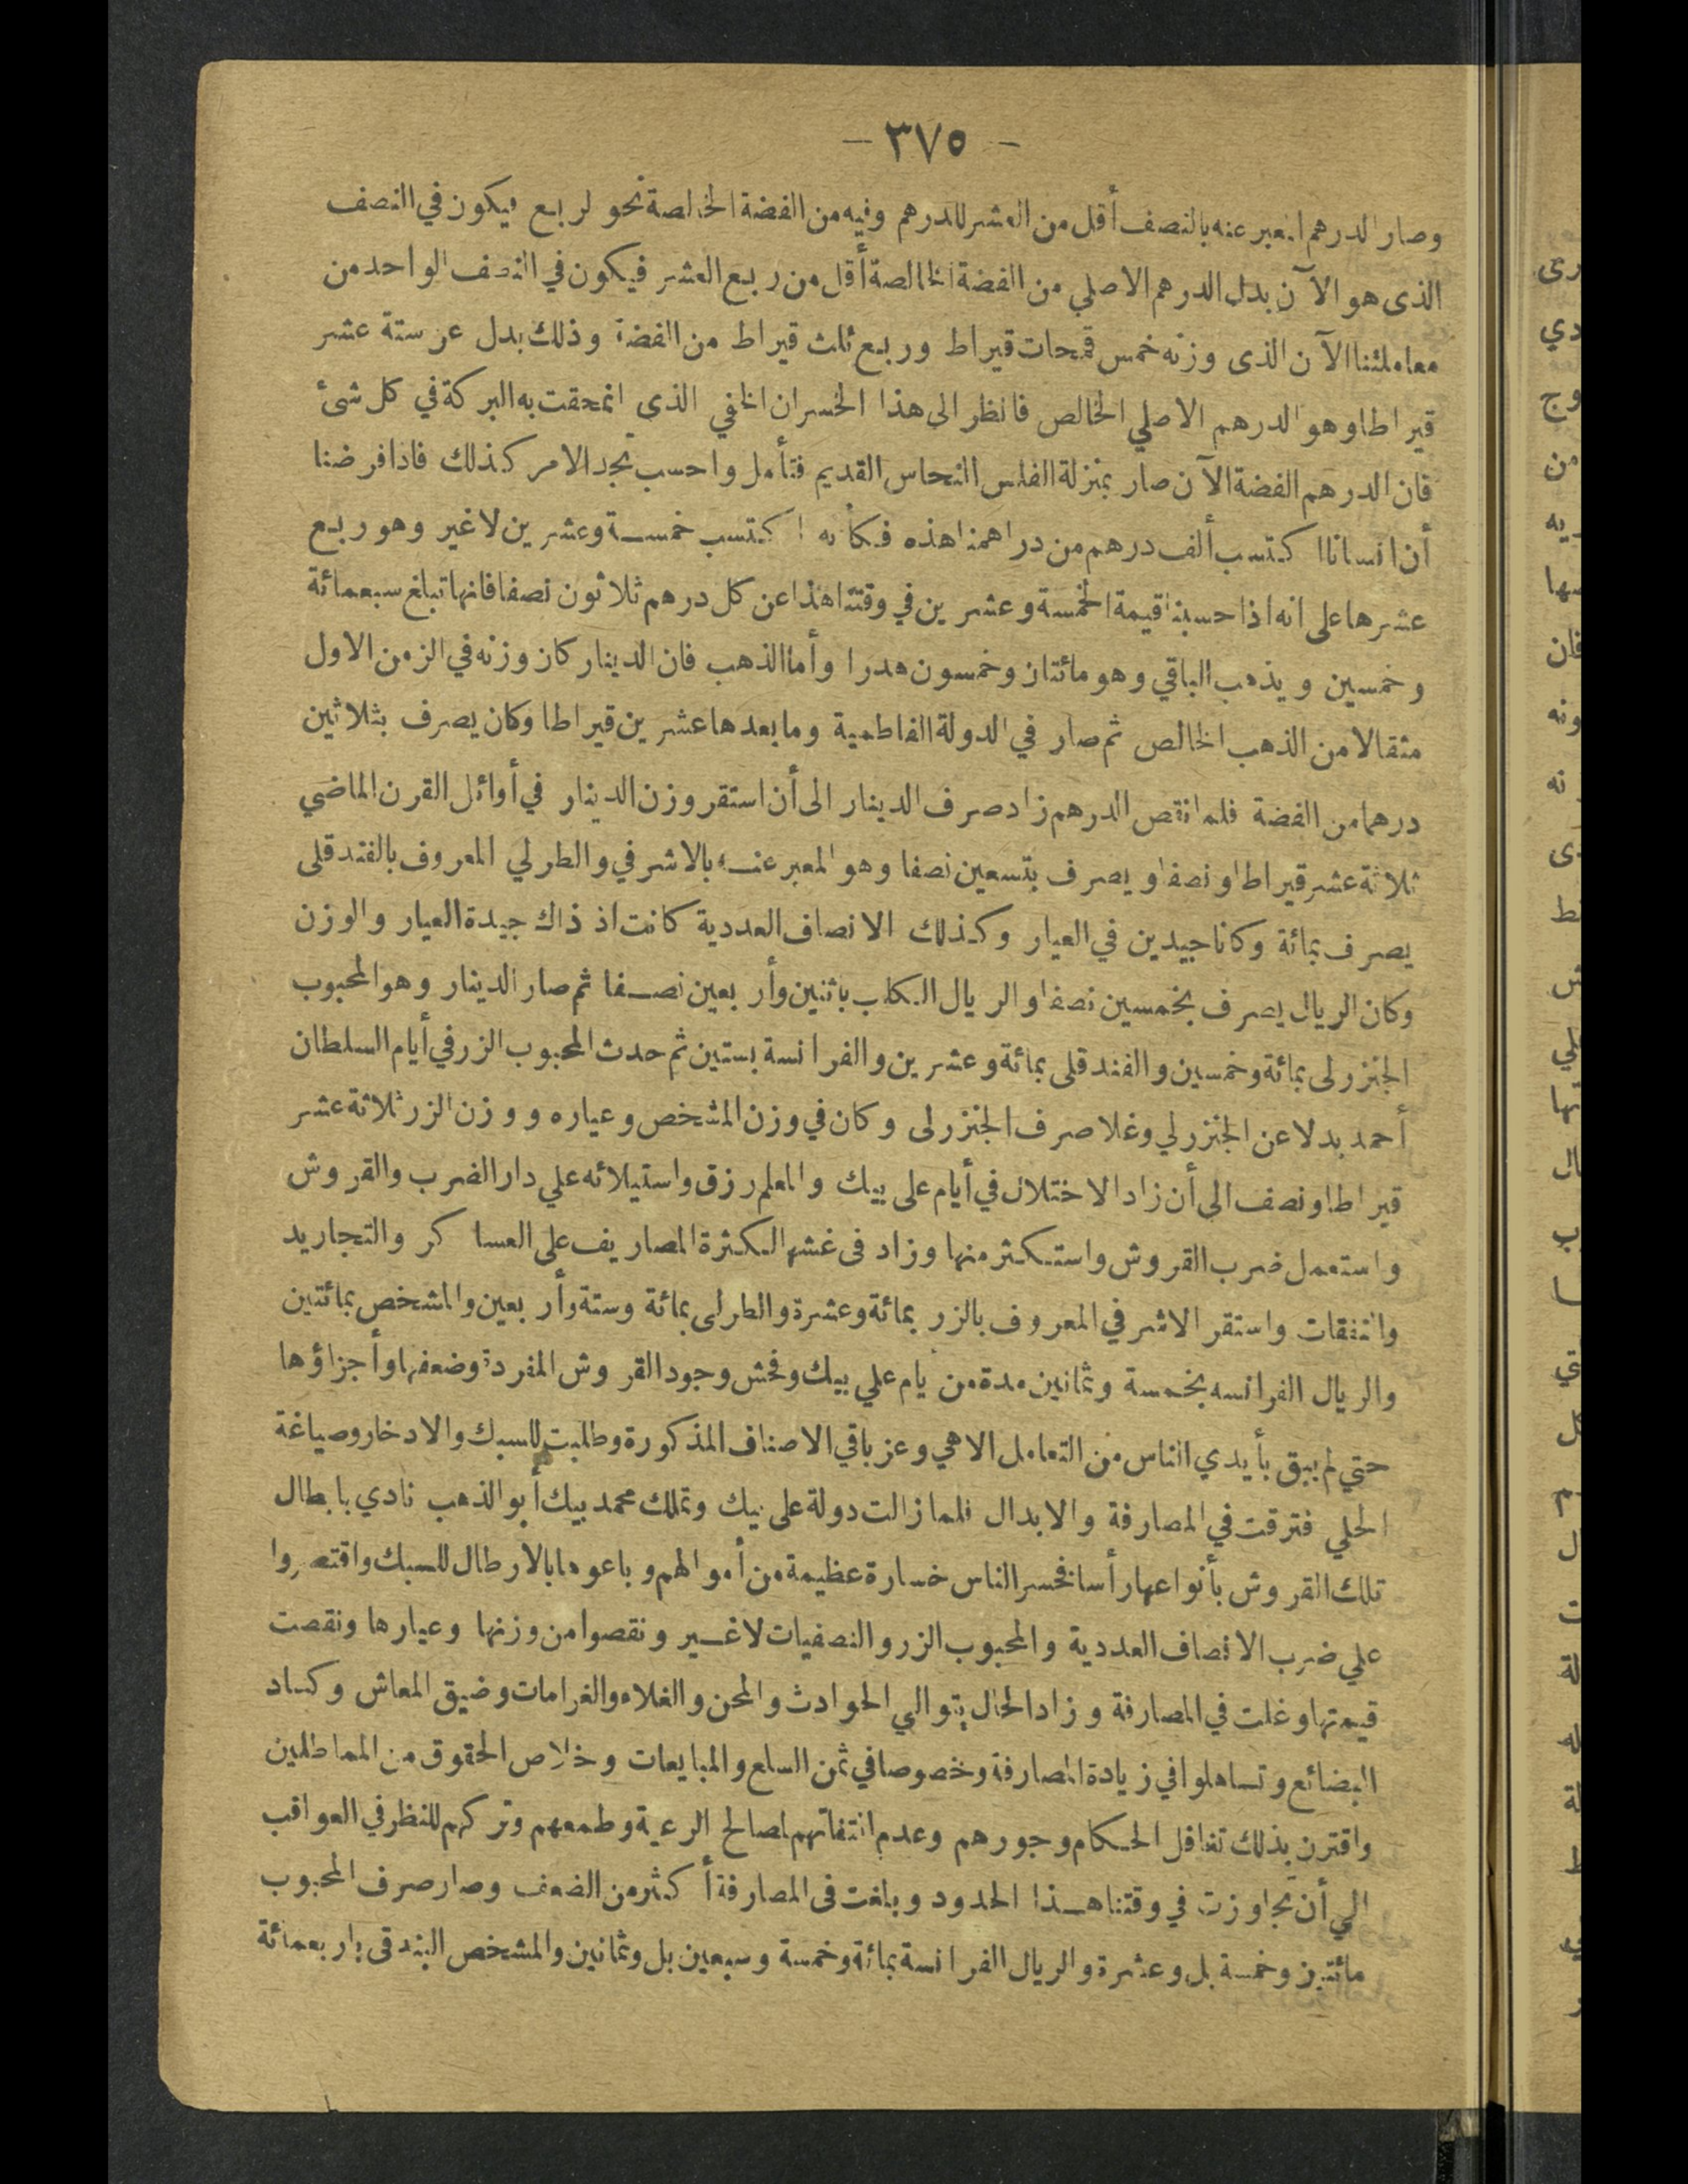 - ٣٧٥ -
وصار الدرهم المعبر عنه بالنصف أقل من العشر للدرهم وفيه من الفضة الخالصة نحو الربع فيكون في النصف
الذى هو الآن بدل الدرهم الاصلي من الفضة الخالصة أقل من ربع العشر فيكون في النصف الواحد من
معاملتنا الآن الذى وزنه خمس قمحات قيراط وربع ثلث قيراط من الفضة وذلك بدل عن ستة عشر
قيراطا وهو الدرهم الاصلي الخالص فانظر الى هذا الخسران الخفي الذى انمحقت به البركة في كل شئ
فان الدرهم الفضة الآن صار بمنزلة الفلس النحاس القديم فتأمل واحسب تجد الامر كذلك فاذا فرضنا
أن انسانا اكتسب ألف درهم من دراهمنا هذه فكأنه اكتسب خمسة وعشرين لا غير وهو ربع
عشرها على انه اذا حسبنا قيمة الخمسة وعشرين في وقتنا هذا عن كل درهم ثلاثون نصفا فانها تبلغ سبعمائة
وخمسين ويذهب الباقي وهو مائتان وخمسون هدرا وأما الذهب فان الدينار كان وزنه في الزمن الاول
مثقالا من الذهب الخالص ثم صار في الدولة الفاطمية وما بعدها عشرين قيراطا وكان يصرف بثلاثين
درهما من الفضة فلما نقص الدرهم زاد صرف الدينار الى أن استقر وزن الدينار في أوائل القرن الماضي
ثلاثة عشر قيراطا ونصفا ويصرف بتسعين نصفا وهو المعبر عنه بالاشرفي والطرلي المعروف بالفندقلى
يصرف بمائة وكانا جيدين في العيار وكذلك الانصاف العددية كانت اذ ذاك جيدة العيار والوزن
وكان الريال يصرف بخمسين نصفا والريال الكلب باثنين وأربعين نصفا ثم صار الدينار وهو المحبوب
الجنزرلى بمائة وخمسين والفندقلى بمائة وعشرين والفرانسة بستين ثم حدث المحبوب الزر في أيام السلطان
أحمد بدلا عن الجنزرلي وغلا صرف الجنزرلى وكان في وزن المشخص وعياره ووزن الزر ثلاثة عشر
قيراطا ونصف الى أن زاد الاختلال في أيام على بيك والمعلم رزق واستيلائه علي دار الضرب والقروش
واستعمل ضرب القروش واستكثر منها وزاد فى غشها لكثرة المصاريف على العساكر والتجاريد
والنفقات واستقر الاشرفي المعروف بالزر بمائة وعشرة والطرلى بمائة وستة وأربعين والمشخص بمائتين
والريال الفرانسه بخمسة وثمانين مدة من أيام علي بيك وفحش وجود القروش المفردة وضعفها وأجزاؤها
حتي لم يبق بأيدي الناس من التعامل الا هي وعز باقي الاصناف المذكورة وطلبت للسبك والادخار وصياغة
الحلي فترقت في المصارفة والابدال فلما زالت دولة على بيك وتملك محمد بيك أبو الذهب نادي بابطال
تلك القروش بأنواعها رأسا فخسر الناس خسارة عظيمة من أموالهم وباعوها بالارطال للسبك واقتصروا
علي ضرب الانصاف العددية والمحبوب الزر والنصفيات لا غير ونقصوا من وزنها وعيارها ونقصت
قيمتها وغلت في المصارفة وزاد الحال بتوالي الحوادث والمحن والغلاء والغرامات وضيق المعاش وكساد
البضائع وتساهلوا في زيادة المصارفة وخصوصا في ثمن السلع والمبايعات وخلاص الحقوق من المماطلين
واقترن بذلك تغافل الحكام وجورهم وعدم التفاتهم لمصالح الرعية وطمعهم وتركهم للنظر في العواقب
الي أن تجاوزت في وقتنا هذا الحدود وبلغت فى المصارفة أكثر من الضعف وصار صرف المحبوب
مائتين وخمسة بل وعشرة والريال الفرانسة بمائة وخمسة وسبعين بل وثمانين والمشخص البندقى بأربعمائة